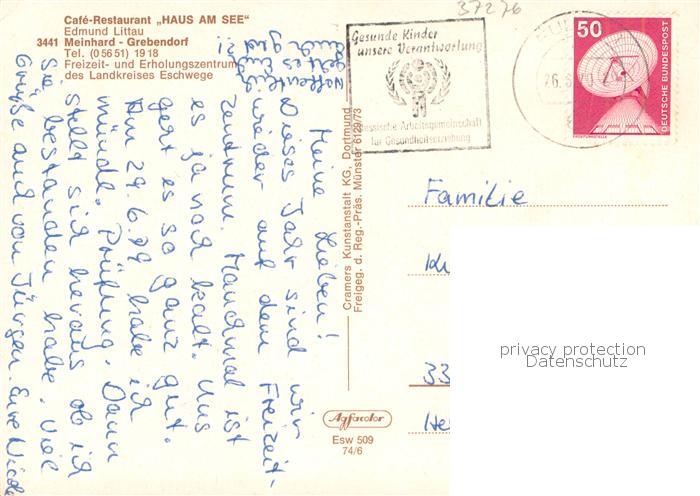 Café-Restaurant „HAUS AM SEE"
Edmund Littau
3441 Meinhard - Grebendorf
Tel. (0 56 51) 19 18
Freizeit- und Erholungszentrum
des Landkreises Eschwege
37276
Gesunde Kinder
unsere Verantwortung
Hessische Arbeitsgemeinschaft
für Gesundheitserziehung
26.6.
50
DEUTSCHE BUNDESPOST
ERDFUNKSTELLE
Meine Lieben!
Dieses Jahr sind wir
wieder auf dem Freizeit-
zentrum. Manchmal ist
es ja noch kalt. Uns
gert es so ganz gut.
Am 29.6.79 habe ich
mündl. Prüfung. Dann
stellt sich heraus ob ich
sie bestanden habe. Viel
Grüße auch von Jürgen. Eure
Hoffentlich
geht es
Euch
gut
Cramers Kunstanstalt KG, Dortmund
Freigeg. d. Reg.-Präs. Münster 6129/73
Familie
33
Agfacolor
Esw 509
74/6
privacy protection
Datenschutz